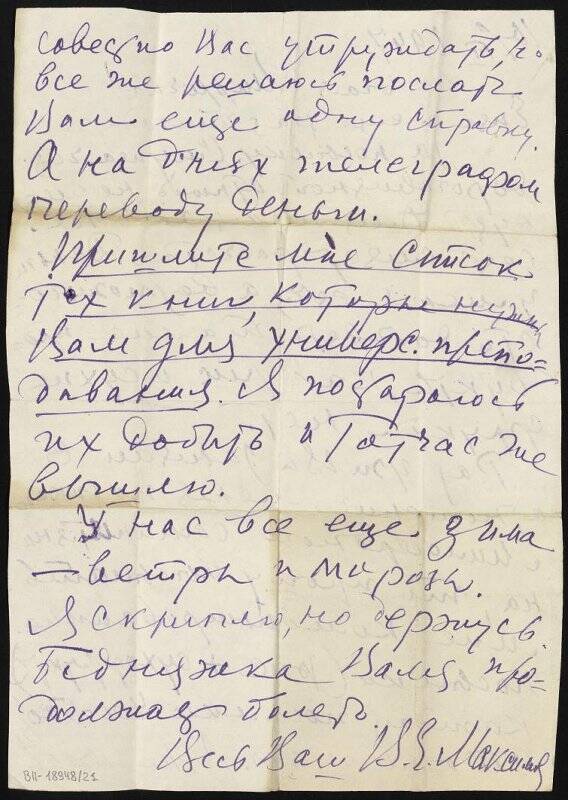 совестно Вас утруждать, но
все же решаюсь послать
Вам еще одну справку.
А на днях телеграфом
переводу деньги.
Пришлите мне список
тех книг, которые нужны
Вам для универс. препо-
давания. Я постараюсь
их добыть и тотчас же
вышлю.
У нас все еще зима
— ветры и морозы.
Я скриплю, но держусь.
Бедняжка Валя про-
должает болеть.
Весь Ваш В.Е. Максимов
ВII-18948/21